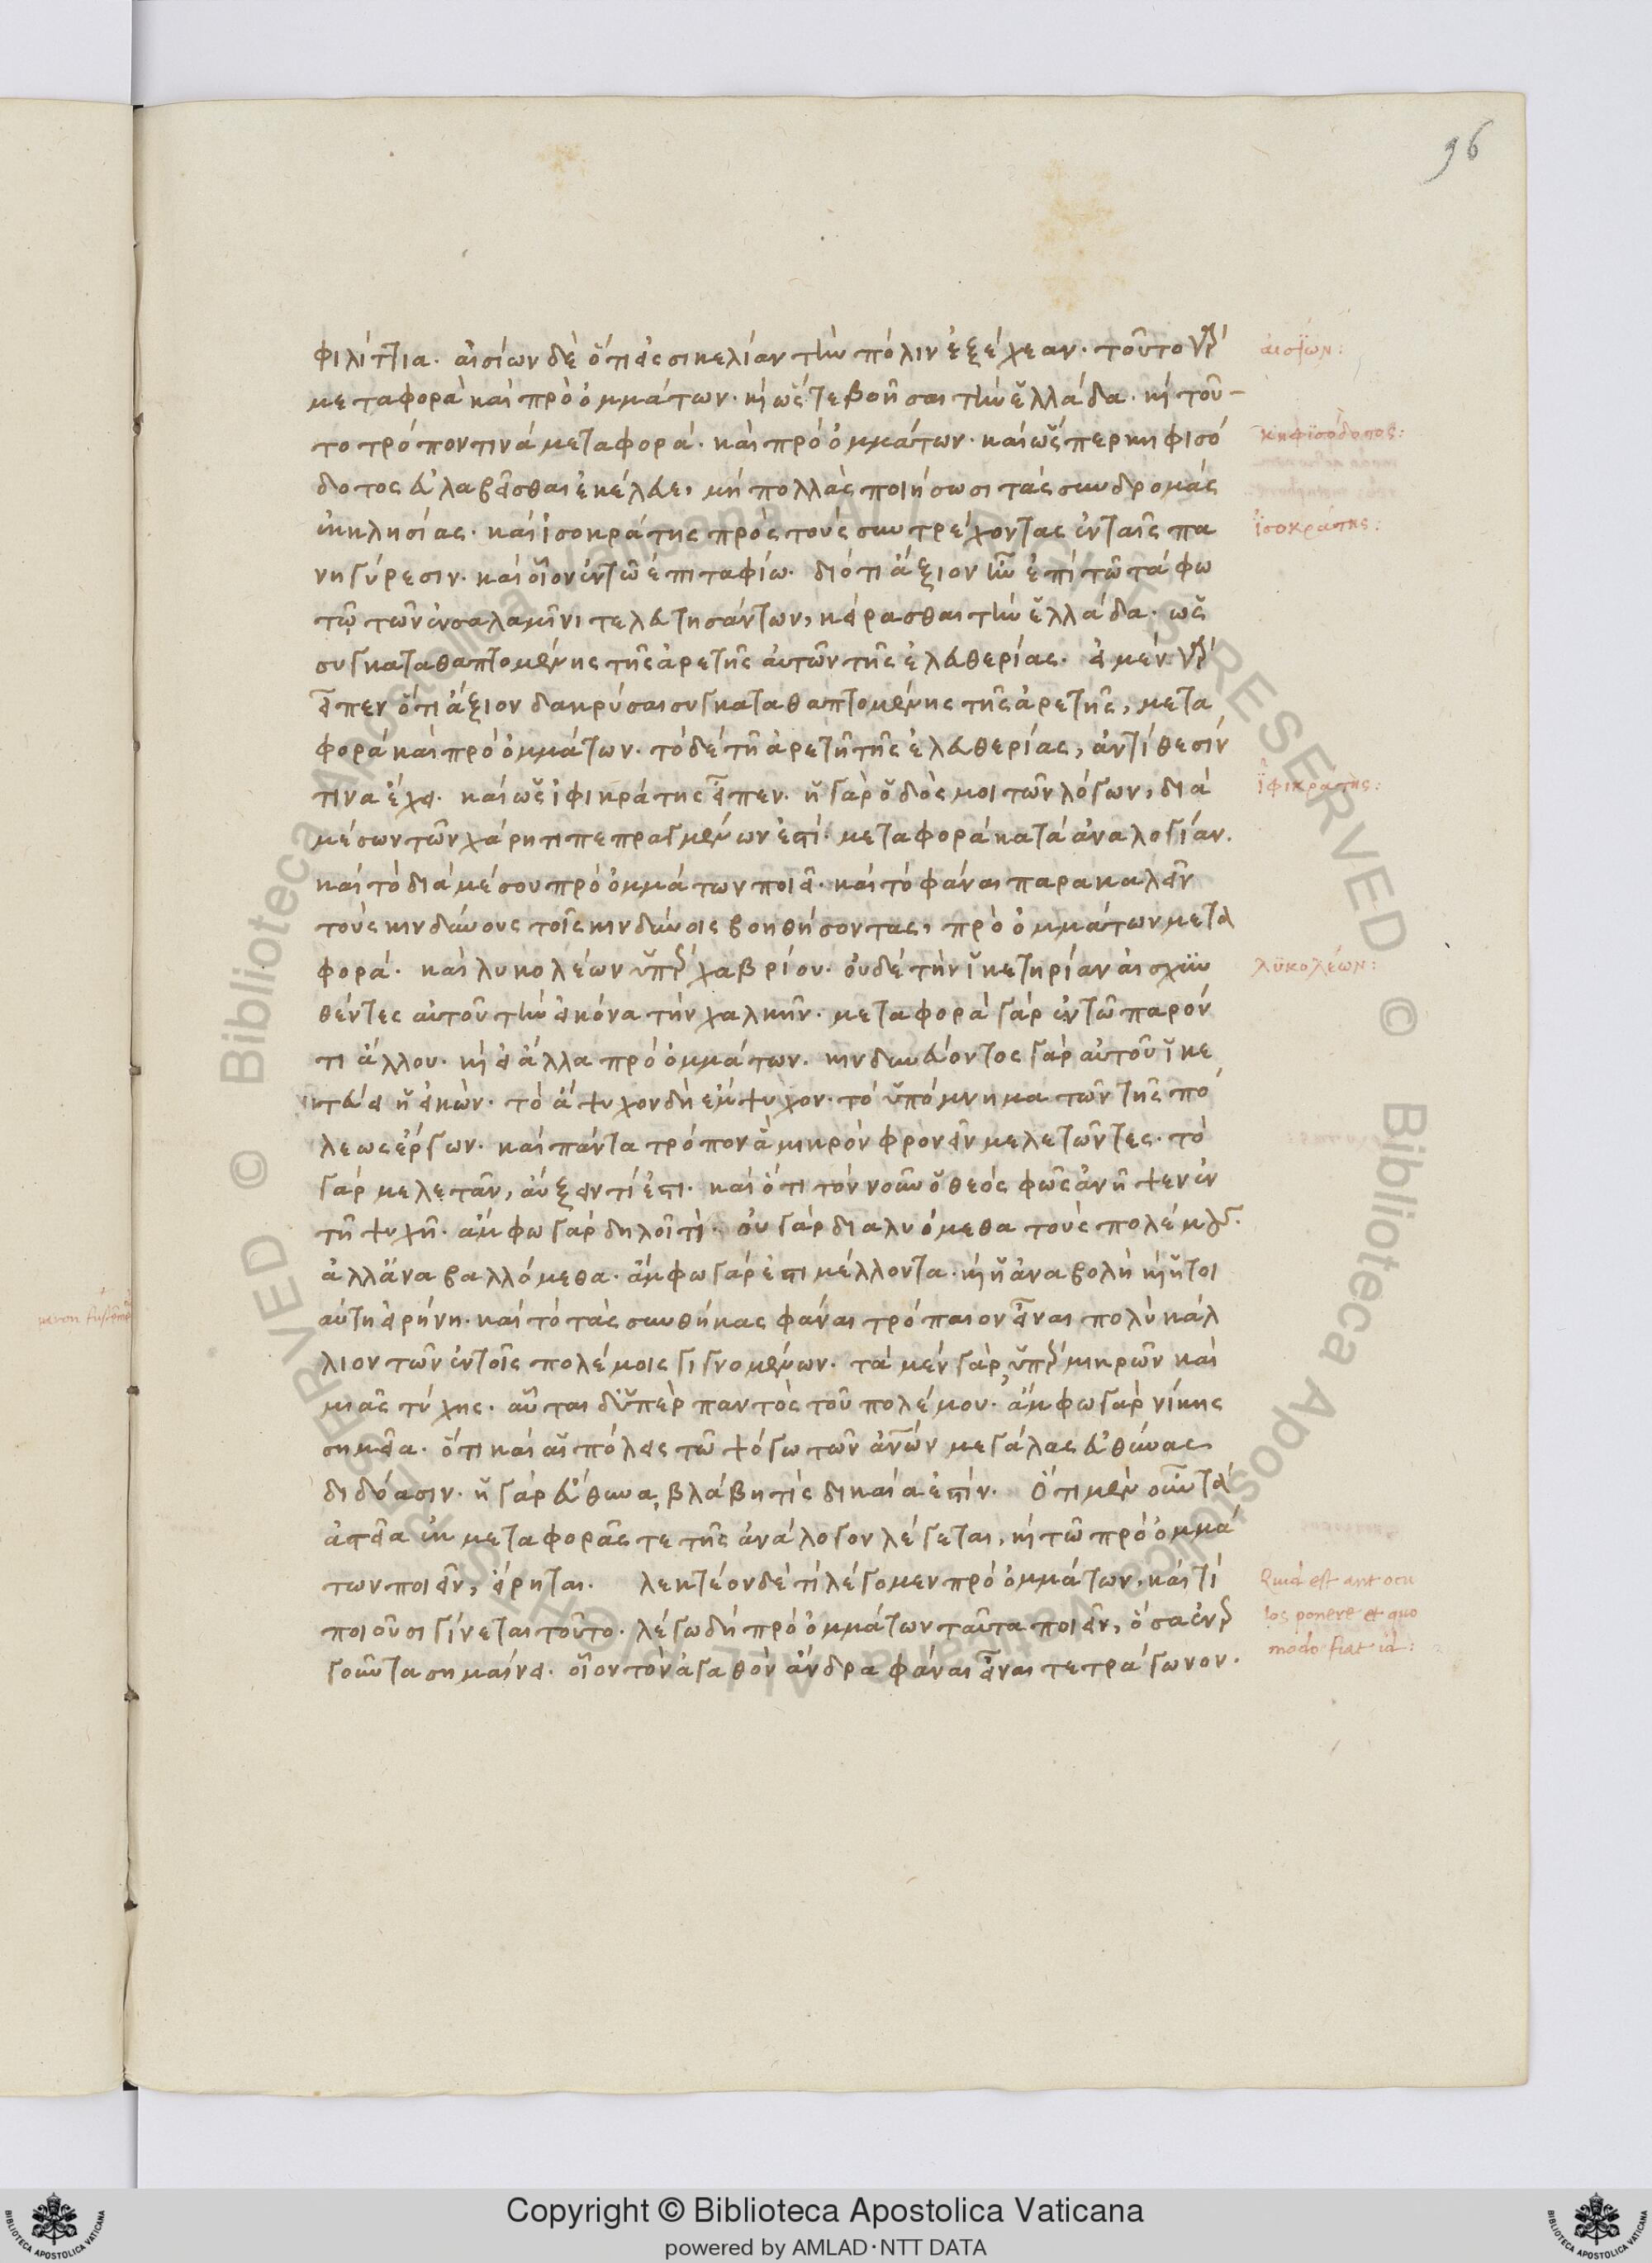 96
φιλίττια. αἰσίων δὲ ὅτι εἰς σικελίαν τὴν πόλιν ἐξέχεαν. τοῦτο γὰρ
μεταφορὰ καὶ πρὸ ὀμμάτων. καὶ ὥστε βοῆσαι τὴν ἑλλάδα. καὶ τοῦ-
το τρόπον τινά μεταφορά. καὶ πρὸ ὀμμάτων. καὶ ὥσπερ κηφισό
δοτος εὐλαβεῖσθαι ἐκέλευε, μὴ πολλὰς ποιήσωσι τὰς συνδρομάς
ἐκκλησίας. καὶ ἰσοκράτης πρὸς τοὺς συντρέχοντας ἐν ταῖς πα
νηγύρεσιν. καὶ οἷον ἐν τῶ ἐπιταφίω. διότι ἄξιον ἦν ἐπὶ τῶ τάφω
τῶ τῶν ἐν σαλαμῖνι τελευτησάντων, κείρασθαι τὴν ἑλλάδα. ὡς
συγκαταθαπτομένης τῆς ἀρετῆς αὐτῶν τῆς ἐλευθερίας. εἰ μὲν γὰρ
εἶπεν ὅτι ἄξιον δακρύσαι συγκαταθαπτομένης τῆς ἀρετῆς, μετα
φορά καὶ πρὸ ὀμμάτων. τὸ δέ τῆ ἀρετῆ τῆς ἐλευθερίας, ἀντίθεσίν
τινα ἔχει. καὶ ὡς ἰφικράτης εἶπεν. ἡ γὰρ ὁδὸς μοι τῶν λόγων, διὰ
μέσων τῶν χάρητι πεπραγμένων ἐστί. μεταφορά κατά ἀναλογίαν.
καὶ τὸ διὰ μέσου πρὸ ὀμμάτων ποιεῖ. καὶ τὸ φάναι παρακαλεῖν
τοὺς κινδύνους τοῖς κινδύνοις βοηθήσοντας, πρὸ ὀμμάτων μετα
φορά. καὶ λυκολέων ὑπὲρ χαβρίου. οὐδὲ τὴν ἱκετηρίαν αἰσχυν
θέντες αὐτοῦ τὴν εἰκόνα τὴν χαλκῆν. μεταφορὰ γάρ ἐν τῶ παρόν
τι ἄλλου. καὶ εἰ ἀλλα πρὸ ὀμμάτων. κινδυνεύοντος γάρ αὐτοῦ ἱκε
τεύει ἡ εἰκών. τὸ ἄψυχον δὴ ἔμψυχον. τὸ ὑπόμνημα τῶν τῆς πό
λεως ἔργων. καὶ πάντα τρόπον ἃ μικρὸν φρονεῖν μελετῶντες. τὸ
γάρ μελετᾶν, αὔξειν τί ἐστι. καὶ ὅτι τὸν νοῦν ὁ θεός φῶς ἀνῆψεν ἐν
τῆ ψυχῆ. ἄμφω γάρ δηλοῖ τί. οὐ γάρ διαλυόμεθα τοὺς πολέμους.
ἀλλ' ἀναβαλλόμεθα. ἄμφω γάρ ἐστι μέλλοντα. καὶ ἡ ἀναβολὴ καὶ ἡ τοι
αύτη εἰρήνη. καὶ τὸ τὰς συνθήκας φάναι τρόπαιον εἶναι πολὺ κάλ
λιον τῶν ἐν τοῖς πολέμοις γιγνομένων. τὰ μὲν γάρ, ὑπὲρ μικρῶν καὶ
μιᾶς τύχης. αὗται δ' ὑπὲρ παντὸς τοῦ πολέμου. ἄμφω γάρ νίκης
σημεῖα. ὅτι καὶ αἱ πόλεις τῶ ψόγω τῶν ἀνθρώπων μεγάλας εὐθύνας
διδόασιν. ἡ γὰρ εὔθυνα, βλάβη τίς δικαία ἐστίν. Ὅτι μὲν οὖν τὰ
ἀστεῖα ἐκ μεταφορᾶς τε τῆς ἀνάλογον λέγεται, καὶ τῶ πρὸ ὀμμά
των ποιεῖν, εἴρηται. λεκτέον δὲ τί λέγομεν πρὸ ὀμμάτων, καὶ τί
ποιοῦσι γίνεται τοῦτο. λέγω δὴ πρὸ ὀμμάτων ταῦτα ποιεῖν, ὅσα ἐνερ
γοῦντα σημαίνει. οἷον τὸν ἀγαθὸν ἄνδρα φάναι εἶναι τετράγωνον.
αισίων:
κηφισόδοτος:
ἰσοκράτης:
ἰφικράτης:
λυκολέων:
Quid est ant ocu
los ponere et quo
modo fiat id:
Copyright © Biblioteca Apostolica Vaticana
powered by AMLAD·NTT DATA